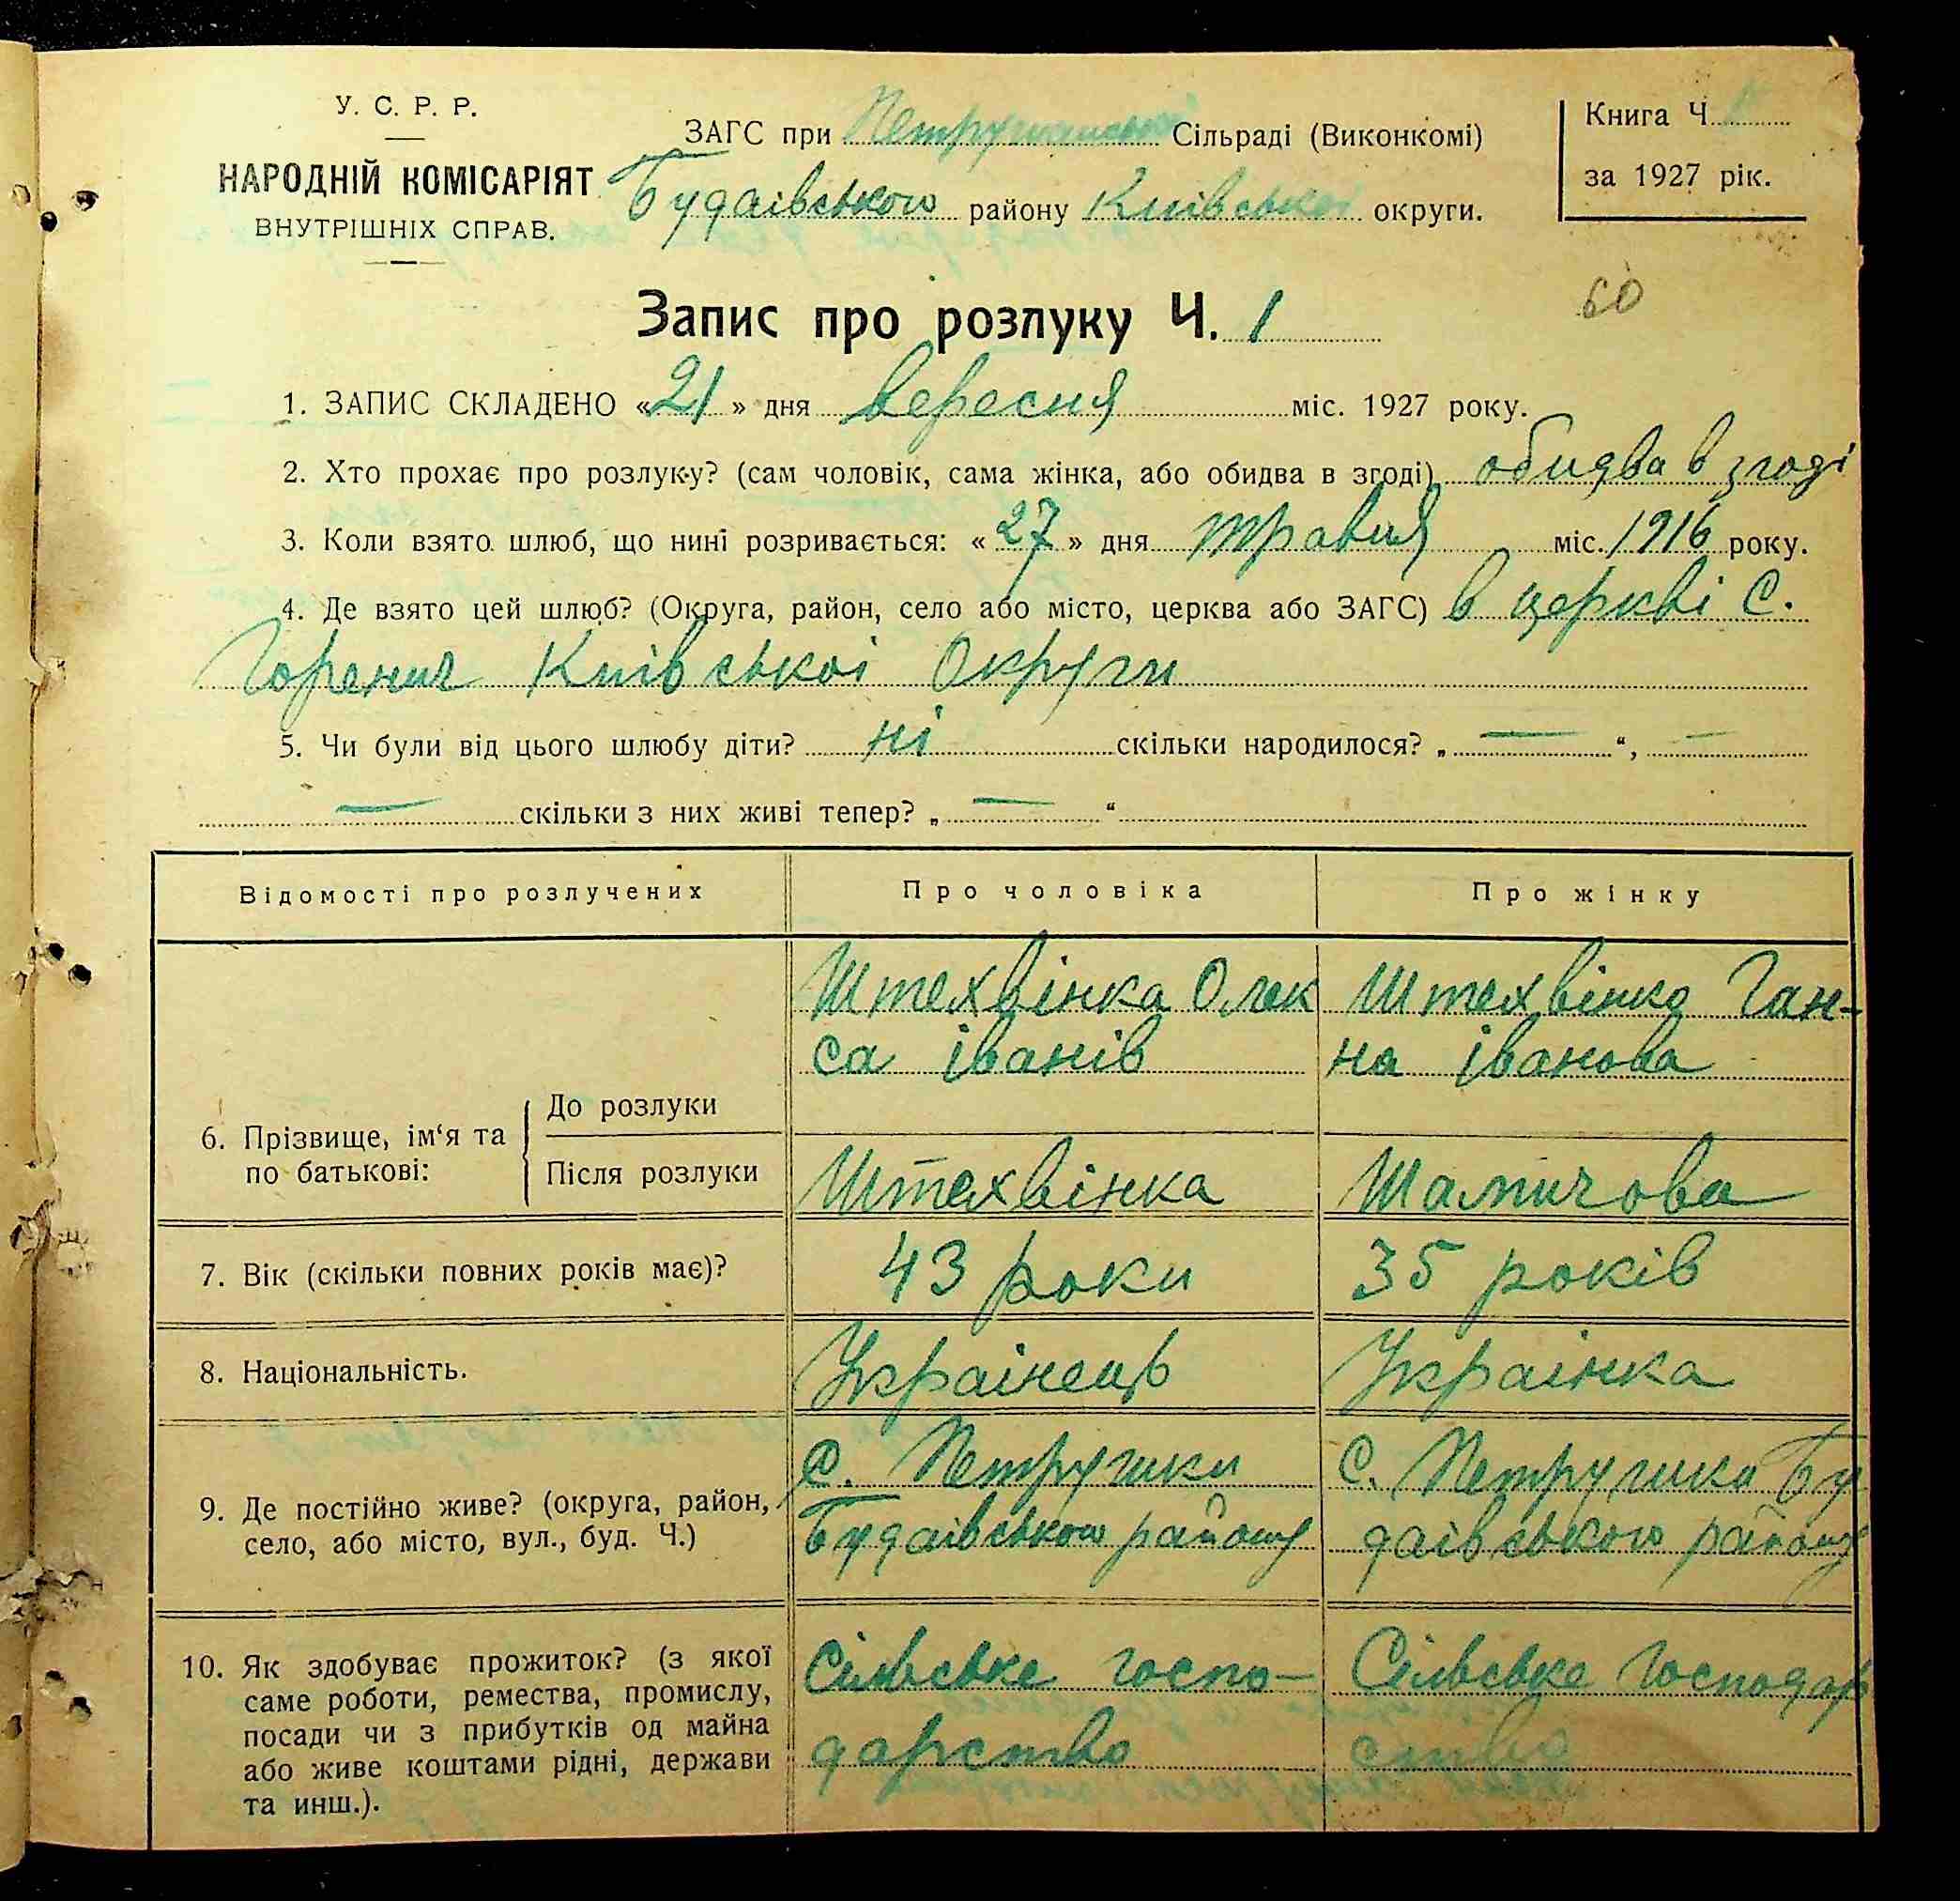 У. С. Р. Р.
НАРОДНІЙ КОМІСАРІЯТ
ВНУТРІШНІХ СПРАВ.
ЗАГС при Петрушанській Сільраді (Виконкомі)
Будаівського району Київської округи.
Книга Ч. 1
за 1927 рік.
60
Запис про розлуку Ч. 1
1. ЗАПИС СКЛАДЕНО «21» дня вересня міс. 1927 року.
2. Хто прохає про розлуку? (сам чоловік, сама жінка, або обидва в згоді) обидва в згоді
3. Коли взято шлюб, що нині розривається: «27» дня травня міс. 1916 року.
4. Де взято цей шлюб? (Округа, район, село або місто, церква або ЗАГС) в церкві С.
Горенич Київськоі Округи
5. Чи були від цього шлюбу діти? ні скільки народилося? „ — “, —
— скільки з них живі тепер? „ — “
Відомості про розлучених
Про чоловіка
Про жінку
6. Прізвище, ім‘я та
по батькові:
До розлуки
Штехвінка Олек
са іванів
Штехвінка Ган-
на іванова
Після розлуки
Штехвінка
Шамичова
7. Вік (скільки повних років має)?
43 роки
35 років
8. Національність.
Украінець
Украінка
9. Де постійно живе? (округа, район,
село, або місто, вул., буд. Ч.)
С. Петрушки
Будаівського району
С. Петрушка Бу
даівського району
10. Як здобуває прожиток? (з якої
саме роботи, ремества, промислу,
посади чи з прибутків од майна
або живе коштами рідні, держави
та инш.).
Сільське госпо-
дарство
Сільське Господар
ство